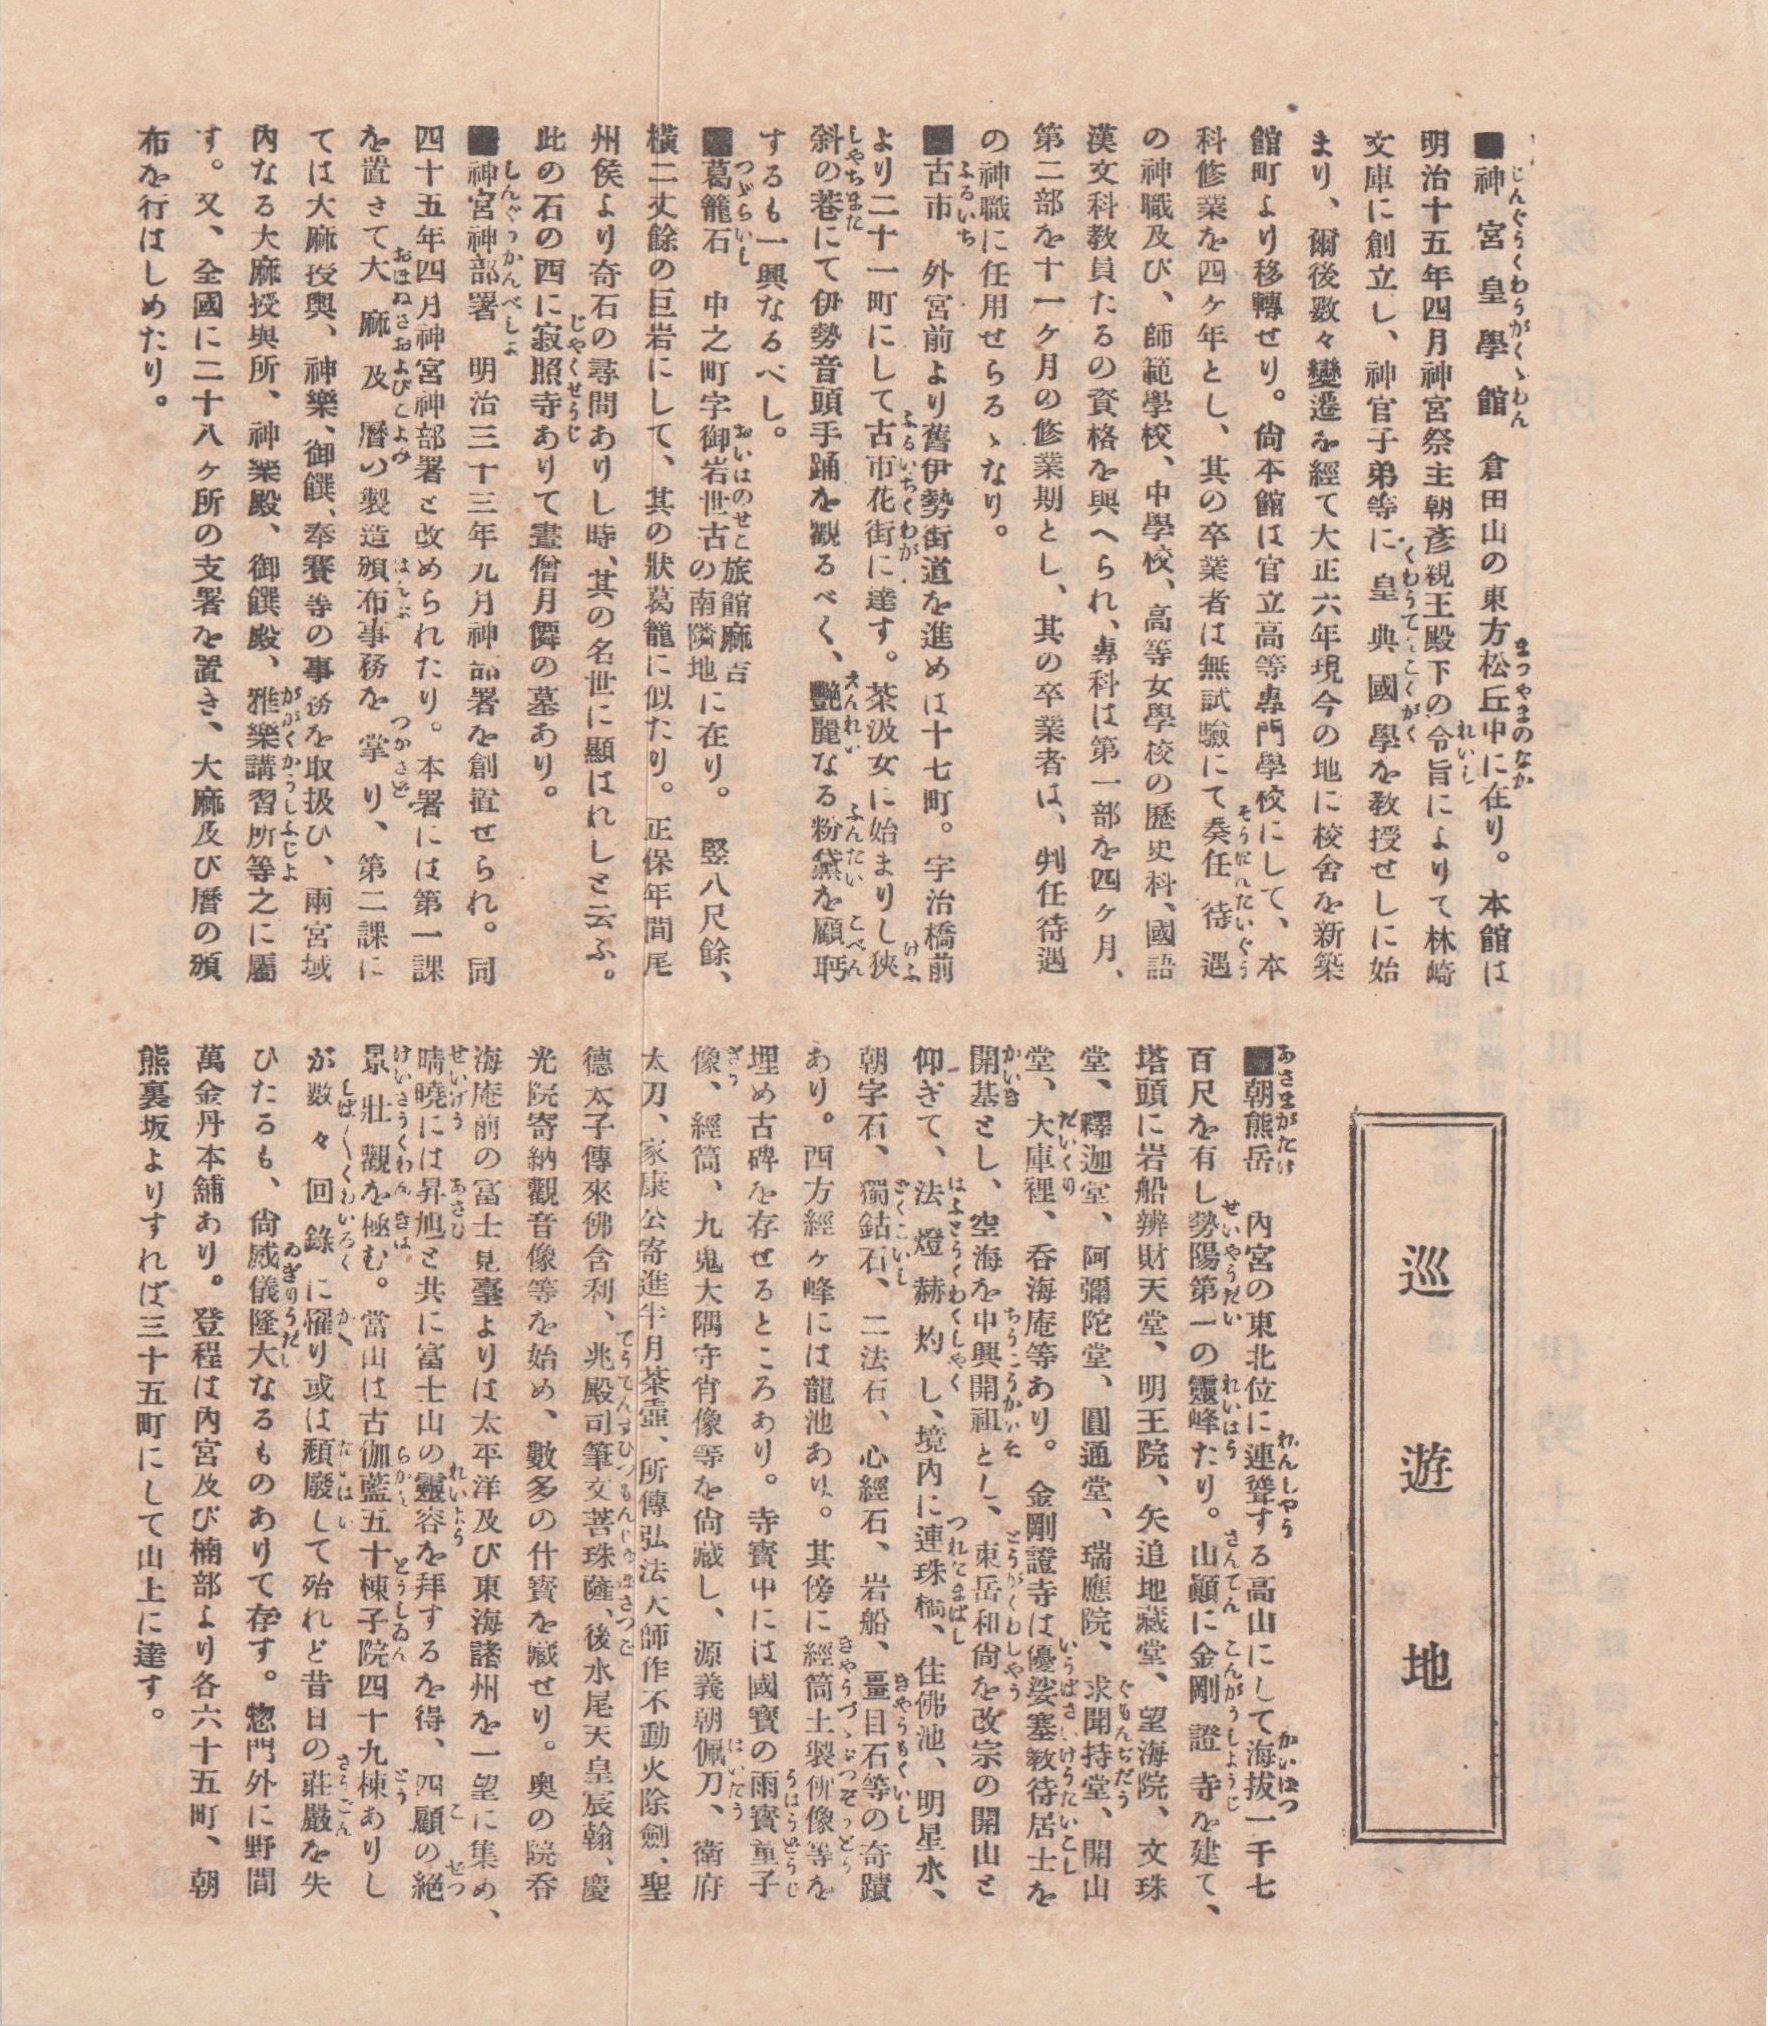 ■神宮皇學館　倉田山の東方松丘中に在り。本館は
明治十五年四月神宮祭主朝彥親王殿下の令旨によりて林崎
文庫に創立し、神官子弟等に皇典國學を教授せしに始
まり、爾後數々變遷を經て大正六年現今の地に校舍を新築
館町より移轉せり。尙本館は官立高等專門學校にして、本
科修業を四ヶ年とし、其の卒業者は無試驗にて奏任待遇
の神職及び、師範學校、中學校、高等女學校の歷史科、國語
漢文科教員たるの資格を與へられ、專科は第一部を四ヶ月、
第二部を十一ヶ月の修業期とし、其の卒業者は、判任待遇
の神職に任用せらるゝなり。
■古市　外宮前より舊伊勢街道を進めは十七町。宇治橋前
より二十一町にして古市花街に達す。茶汲女に始まりし狹
斜の巷にて伊勢音頭手踊を觀るべく、艷麗なる粉黛を顧眄
するも一興なるべし。
■葛籠石　中之町字御岩世古旅館麻吉の南隣地に在り。竪八尺餘、
橫二丈餘の巨岩にして、其の狀葛籠に似たり。正保年間尾
州侯より奇石の尋問ありし時、其の名世に顯はれしと云ふ。
此の石の西に寂照寺ありて畫僧月僊の墓あり。
■神宮神部署　明治三十三年九月神部署を創置せられ。同
四十五年四月神宮神部署と改められたり。本署には第一課
を置きて大麻及曆の製造頒布事務を掌り、第二課に
ては大麻授與、神樂、御饌、奉賽等の事務を取扱ひ、兩宮域
內なる大麻授與所、神樂殿、御饌殿、雅樂講習所等之に屬
す。又、全國に二十八ヶ所の支署を置き、大麻及び曆の頒
布を行はしめたり。
巡遊地
■朝熊岳　內宮の東北位に連聳する高山にして海拔一千七
百尺を有し勢陽第一の靈峰たり。山顚に金剛證寺を建て、
塔頭に岩船辨財天堂、明王院、矢追地藏堂、望海院、文珠
堂、釋迦堂、阿彌陀堂、圓通堂、瑞應院、求聞持堂、開山
堂、大庫裡、呑海庵等あり。金剛證寺は優娑塞教待居士を
開基とし、空海を中興開祖とし、東岳和尙を改宗の開山と
仰ぎて、法燈赫灼し、境內に連珠橋、住佛池、明星水、
朝字石、獨鈷石、二法石、心經石、岩船、畺目石等の奇蹟
あり。四方經ヶ峰には龍池あり。其傍に經筒土製佛像等を
埋め古碑を存せるところあり。寺寶中には國寶の雨寶童子
像、經筒、九鬼大隅守肖像等を尙藏し、源義朝佩刀、衛府
太刀、家康公寄進半月茶壺、所傳弘法大師作不動火除劍、聖
德太子傳來佛舍利、兆殿司筆文菩珠薩、後水尾天皇宸翰、慶
光院寄納觀音像等を始め、數多の什寶を藏せり。奧の院呑
海庵前の富士見臺よりは太平洋及び東海諸州を一望に集め、
晴曉には昇旭と共に富士山の靈容を拜するを得、四顧の絕
景壯觀を極む。當山は古伽藍五十棟子院四十九棟ありし
が數々回錄に罹り或は頽廢して殆れど昔日の莊嚴を失
ひたるも、尙威儀隆大なるものありて存す。惣門外に野間
萬金丹本舖あり。登程は內宮及び楠部より各六十五町、朝
熊裏坂よりすれば三十五町にして山上に達す。